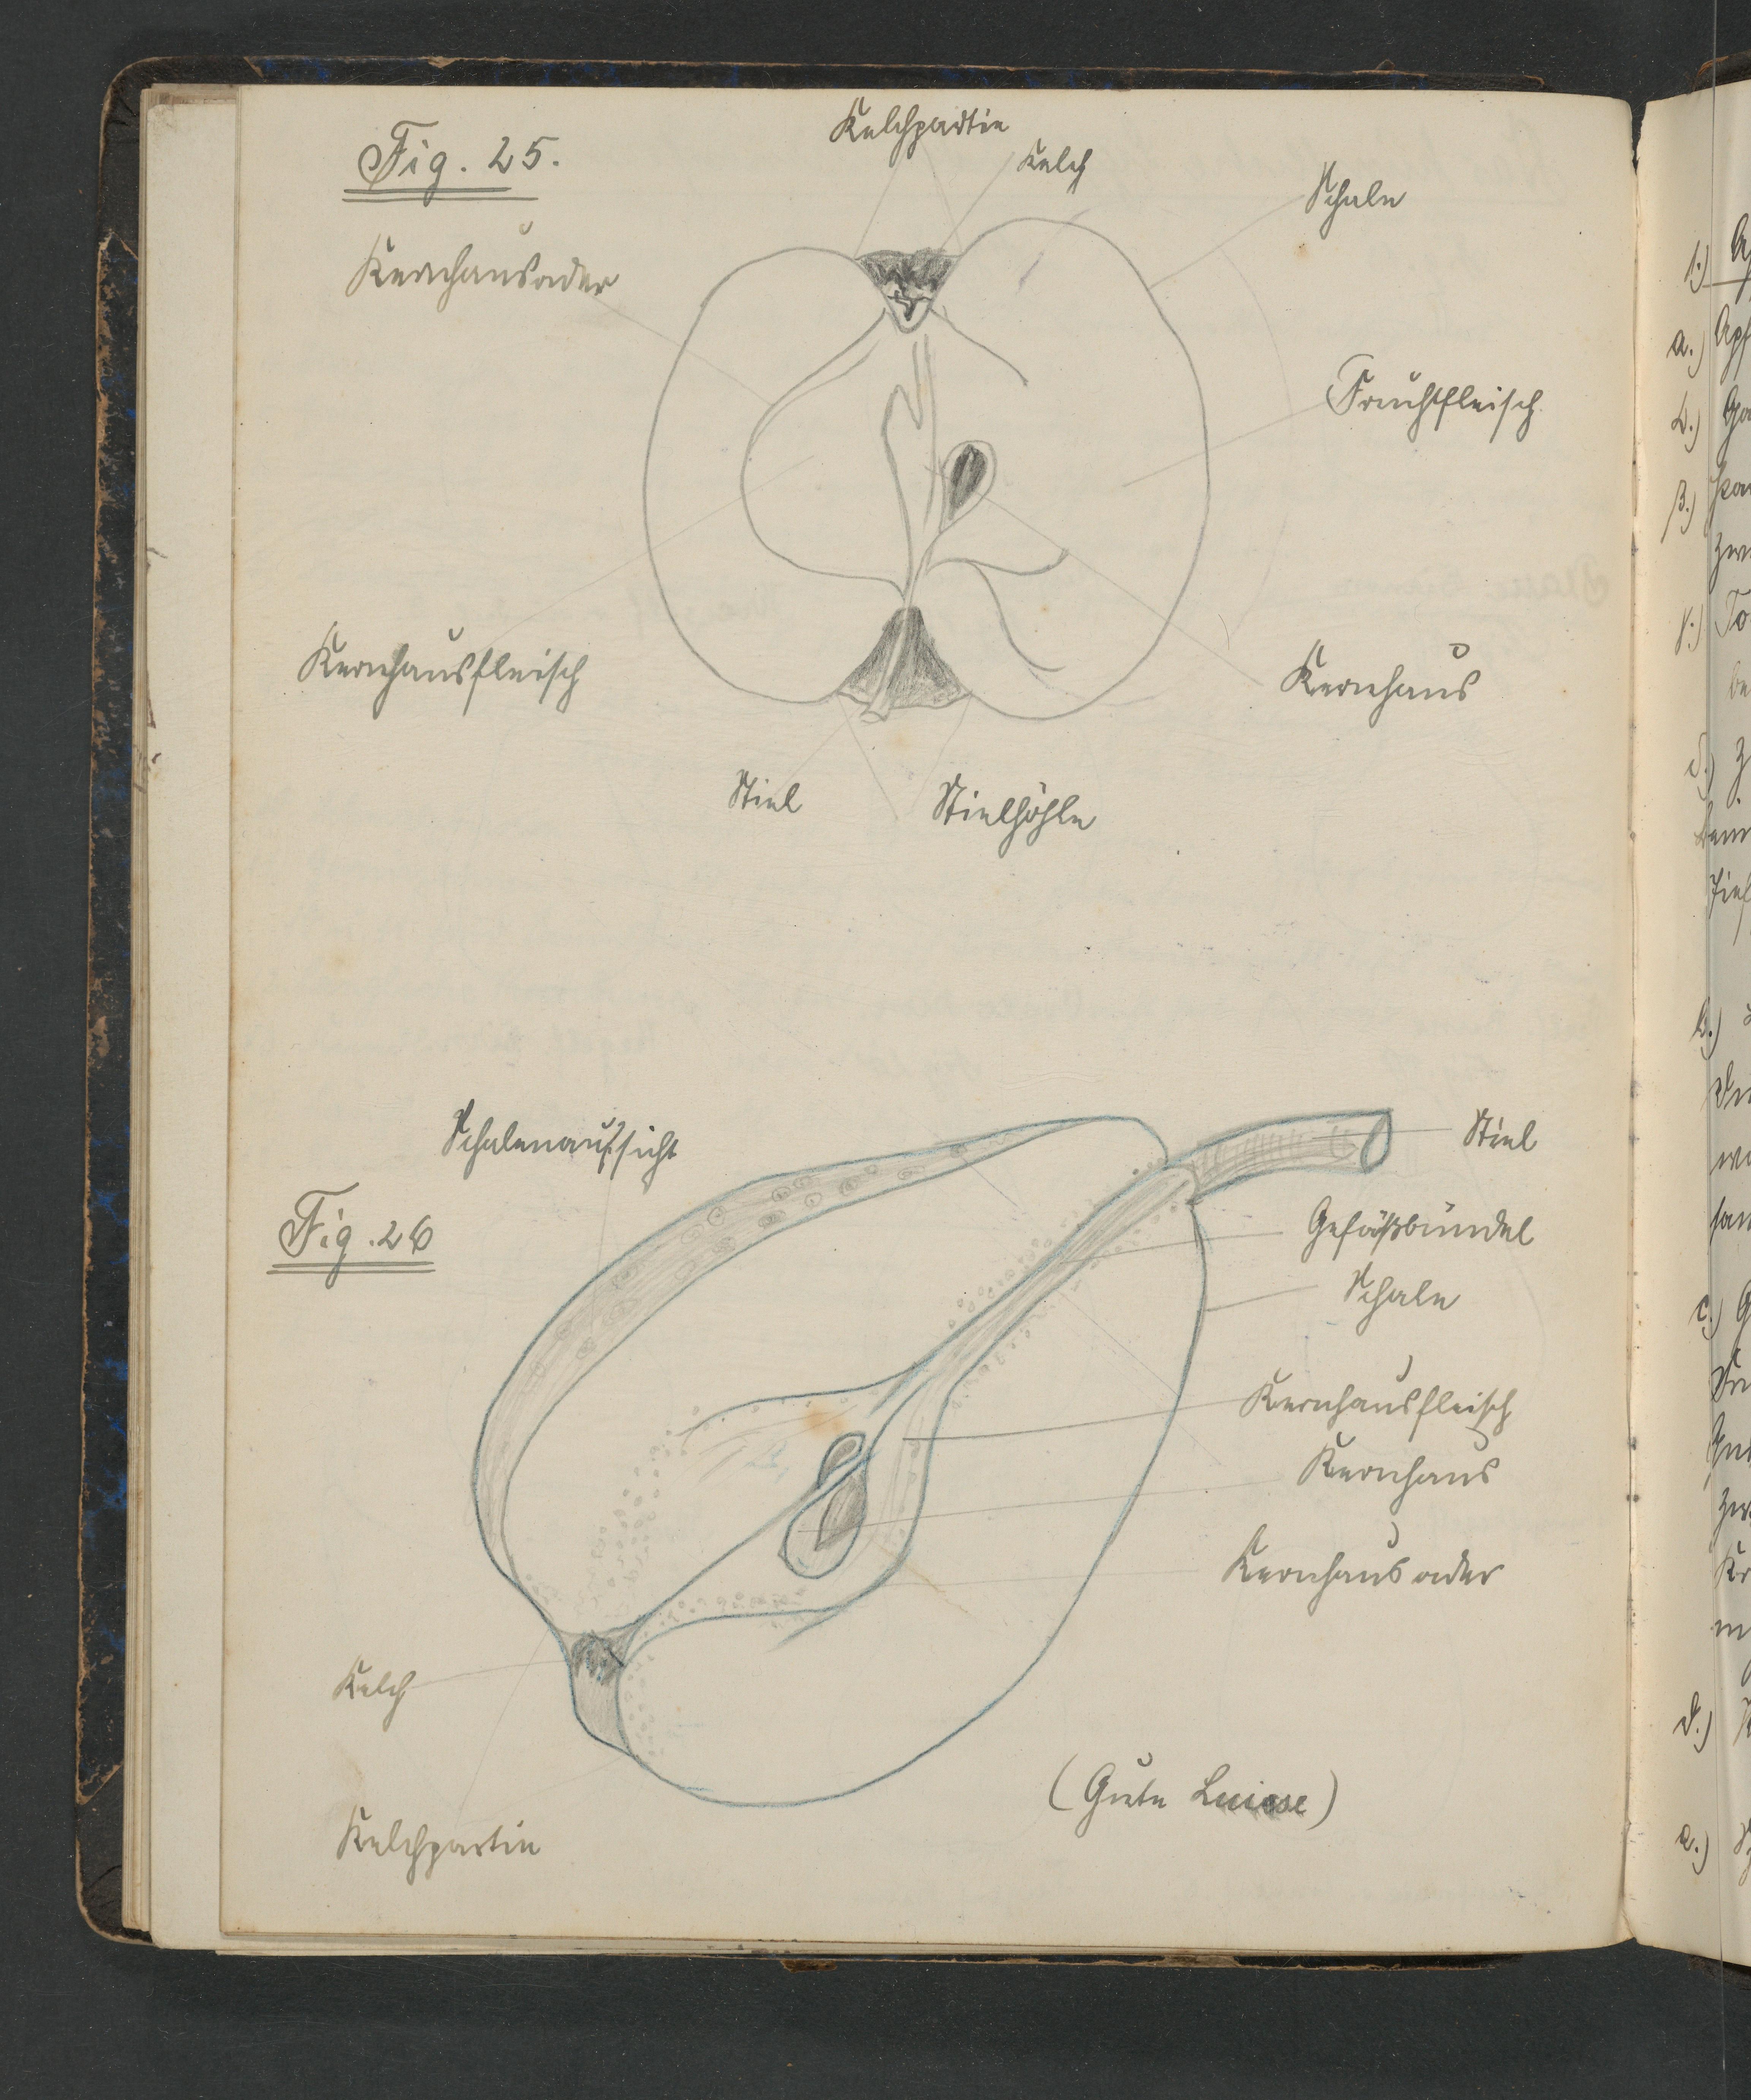 Kelchpartie
Fig. 25.
Kelch
Schale
Kernhausader
Fruchtfleisch
Kernhausfleisch
Kernhaus
Stiel
Stielhöhle
Schalenaufsicht
Stiel
Fig. 26
Gefäßbündel
Schale
Kernhausfleisch
Kernhaus
Kernhausader
Kelch
(Gute Luise)
Kelchpartie
1.)
a.) Apf
b.)
β.)
zwe
γ.) To
be
c.)
d.)